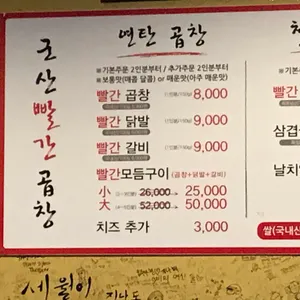 군산빨간곱창
연탄 곱창
※기본주문 2인분부터 / 추가주문 2인분부터
※보통맛(매콤 달콤) or 매운맛(아주 매운맛)
빨간 곱창 8,000
빨간 닭발 9,000
빨간 갈비 9,000
빨간모듬구이 (곱창+닭발+갈비)
小 26,000→ 25,000
大 52,000→ 50,000
치즈 추가 3,000
빨간
삼겹
날치
쌀(국내산
세월이 지나도